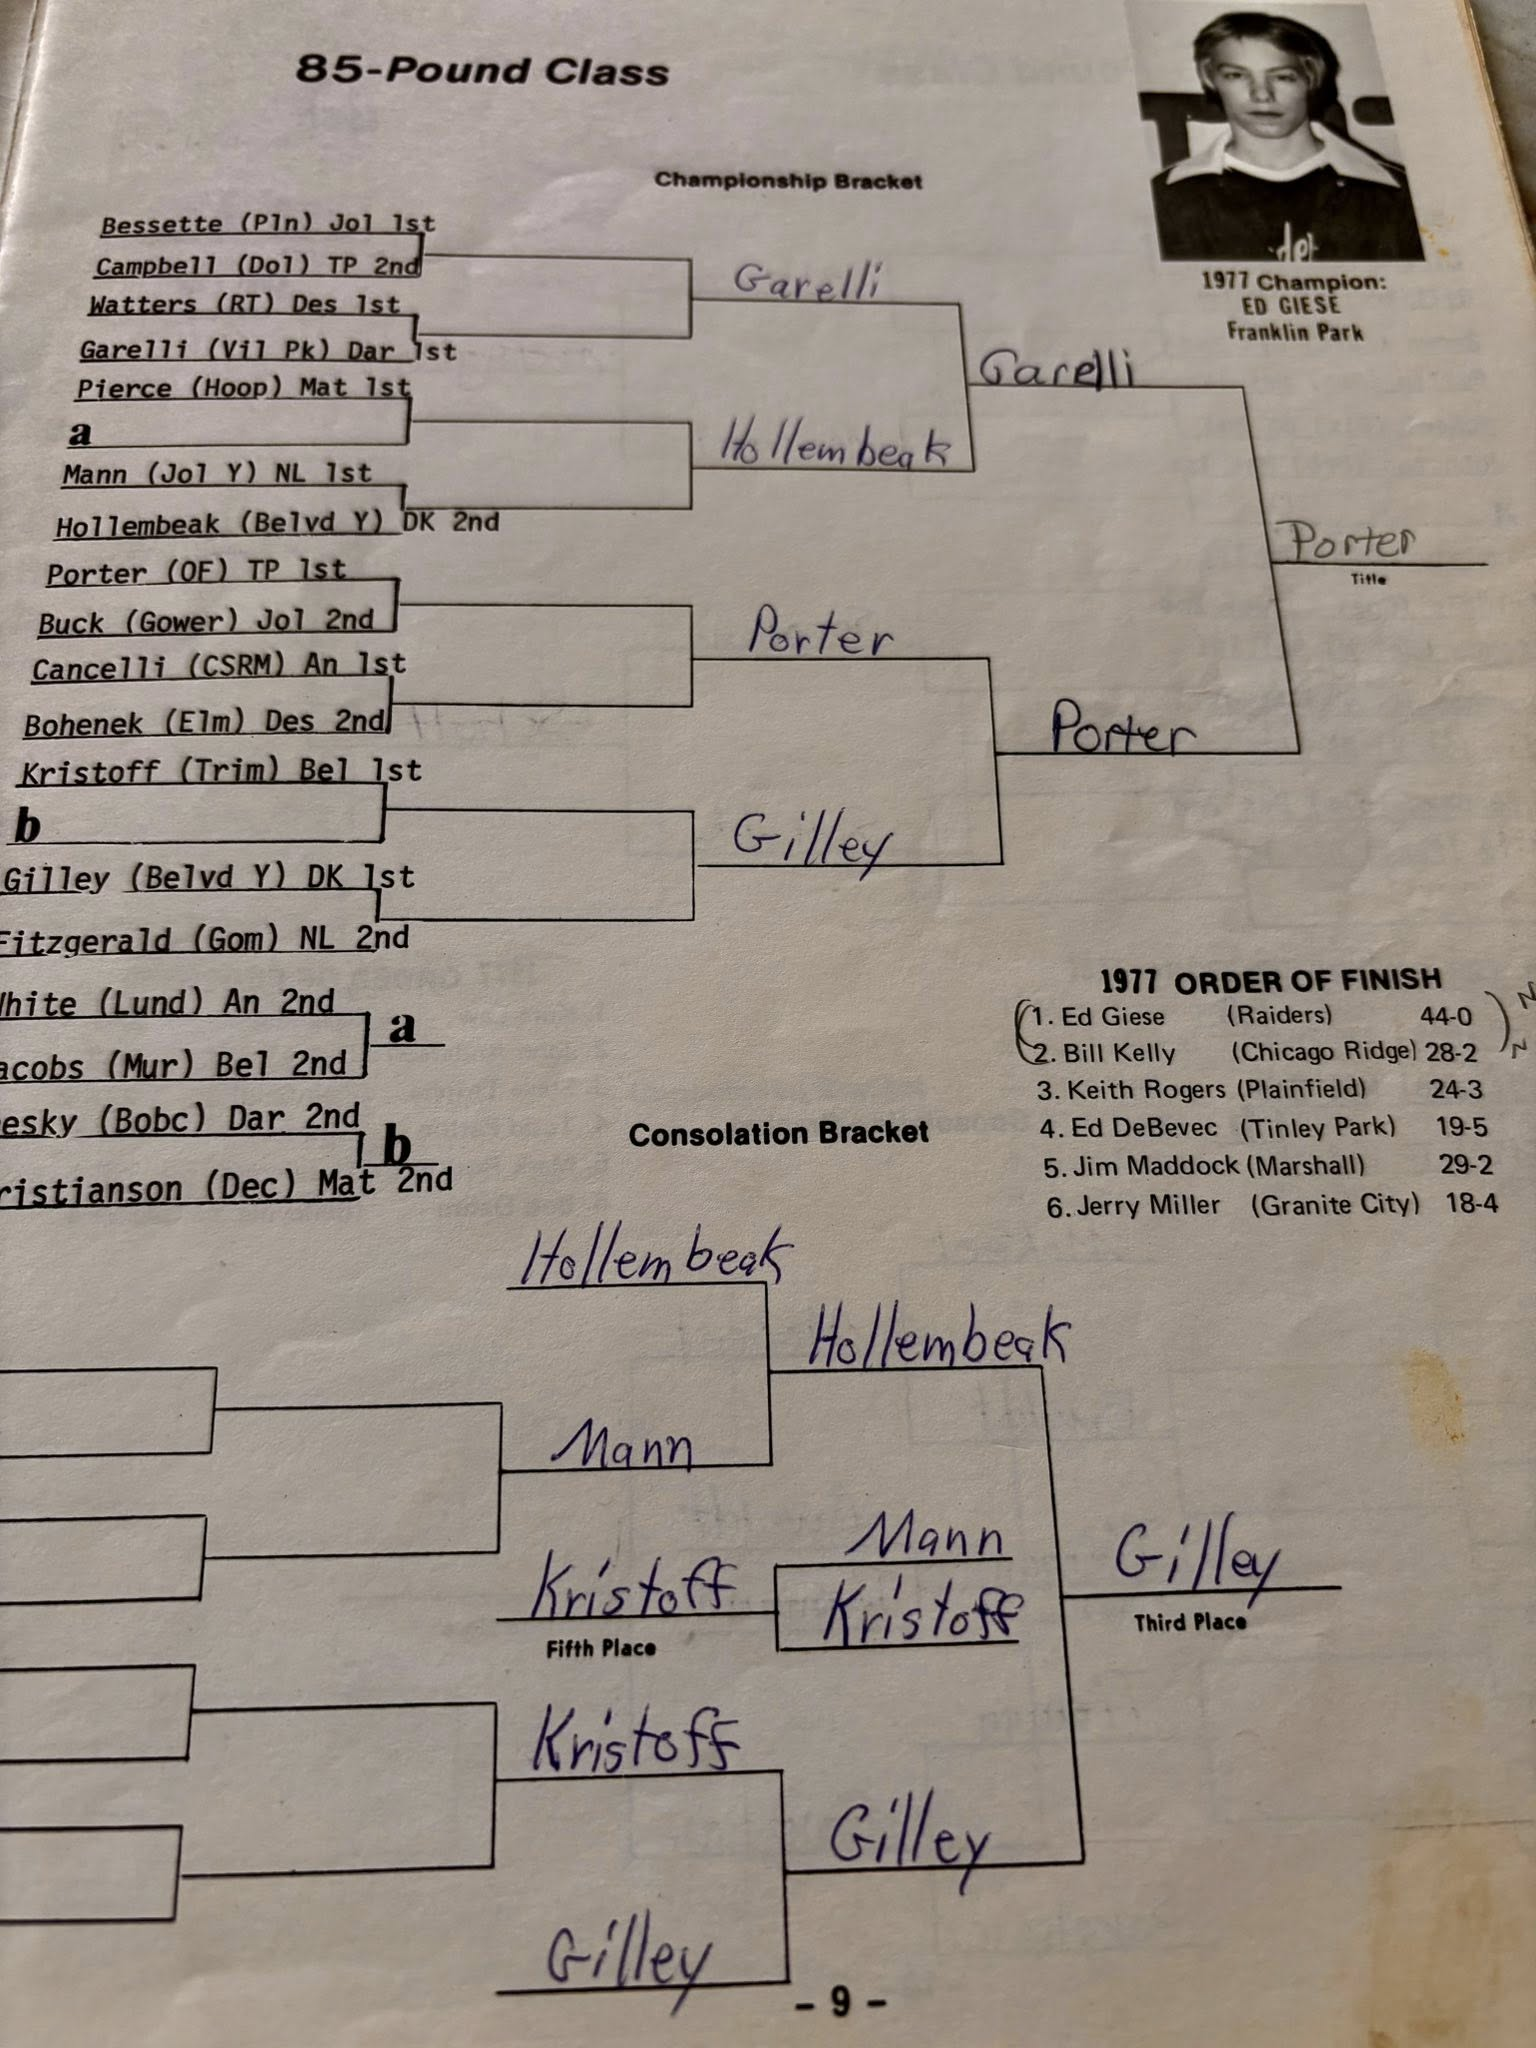 85-Pound Class
de
1977 Champion:
ED GIESE
Franklin Park
Championship Bracket
Bessette (Pln) Jol 1st
Campbell (Dol) TP 2nd
Watters (RT) Des 1st
Garelli (Vil Pk) Dar 1st
Pierce (Hoop) Mat 1st
a
Mann (Jol Y) NL 1st
Hollembeak (Belvd Y) DK 2nd
Porter (OF) TP 1st
Buck (Gower) Jol 2nd
Cancelli (CSRM) An 1st
Bohenek (Elm) Des 2nd
Kristoff (Trim) Bel 1st
b
Gilley (Belvd Y) DK 1st
Fitzgerald (Gom) NL 2nd
White (Lund) An 2nd
acobs (Mur) Bel 2nd
a
esky (Bobc) Dar 2nd
ristianson (Dec) Mat 2nd
b
Garelli
Hollembeak
Porter
Gilley
Garelli
Porter
Porter
Title
1977 ORDER OF FINISH
1. Ed Giese (Raiders) 44-0
2. Bill Kelly (Chicago Ridge) 28-2
3. Keith Rogers (Plainfield) 24-3
4. Ed DeBevec (Tinley Park) 19-5
5. Jim Maddock (Marshall) 29-2
6. Jerry Miller (Granite City) 18-4
N
N
Consolation Bracket
Hollembeak
Hollembeak
Mann
Mann
Kristoff
Kristoff
Fifth Place
Gilley
Third Place
Kristoff
Gilley
Gilley
- 9 -